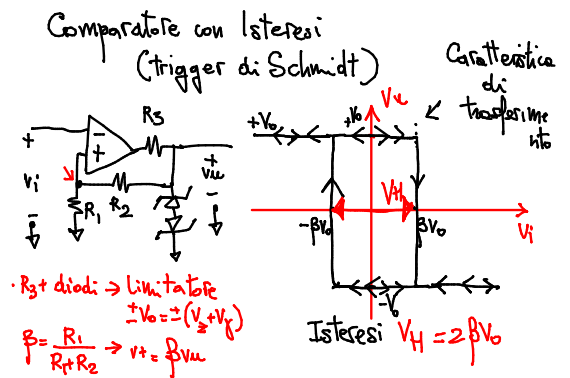 Comparatore con Isteresi
(trigger di Schmidt)
Caratteristica
di
trasferime
nto
R3
+
-
+
vi
-
R1
R2
+
vu
-
Vu
+Vo
+Vo
VH
-βVo
βVo
Vi
-Vo
• R3 + diodi → limitatore
±Vo = ±(Vz+Vγ)
β = R1 / R1+R2 → v+ = βvu
Isteresi VH = 2βVo